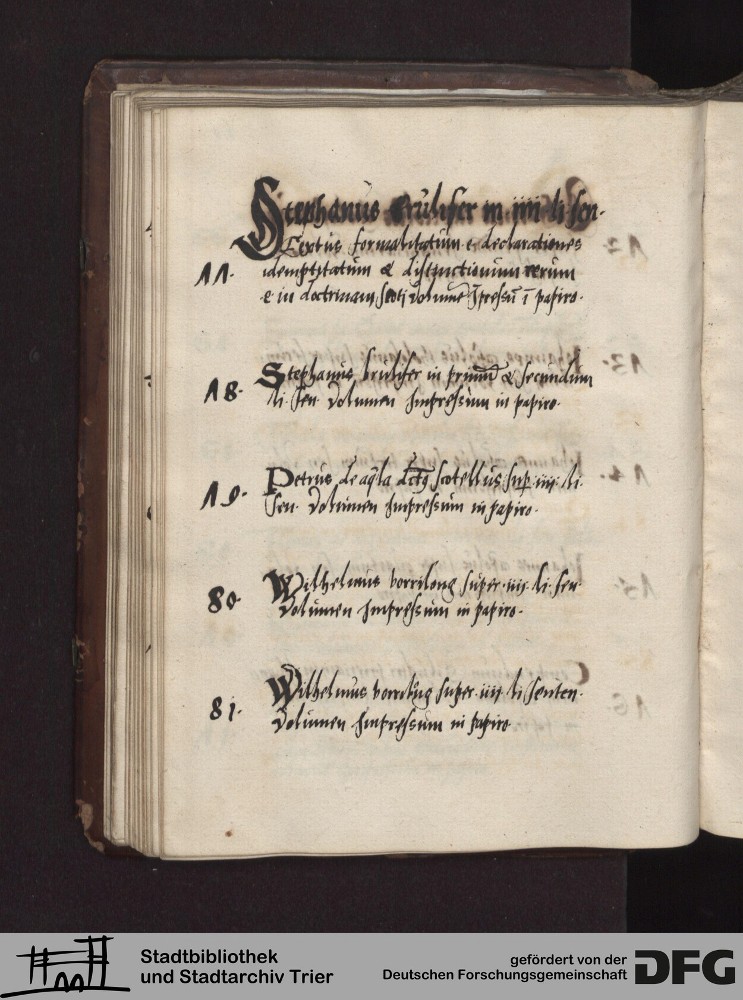 Stephanus Brulifer in iiii li sen.
Textus formalitatum & declarationes
11. idemptitatum & distinctionum rerum
& in doctrinam Scoti volumē Īpressū ī papiro.
18. Stephanus brulifer in primū & secundum
li. sen. Volumen Impressum in papiro.
19. Petrus de aq̄la dctꝰ scotellus sup. iiii. li.
sen. Volumen Impressum in papiro.
80. Wilhelmus vorrilong super. iiii. li. sen.
Volumen Impressum in papiro.
81. Wilhelmus vorrilūg super. iiii. li senten.
Volumen Impressum in papiro
Stadtbibliothek
und Stadtarchiv Trier
gefördert von der
Deutschen Forschungsgemeinschaft
DFG